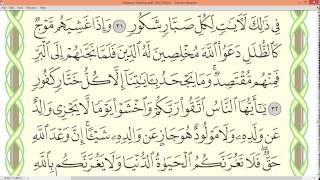 فِى ذَٰلِكَ لَءَايَٰتٍ لِّكُلِّ صَبَّارٍ شَكُورٍ ٣١ وَإِذَا غَشِيَهُم مَّوْجٌ
كَٱلظُّلَلِ دَعَوُا۟ ٱللَّهَ مُخْلِصِينَ لَهُ ٱلدِّينَ فَلَمَّا نَجَّىٰهُمْ إِلَى ٱلْبَرِّ
فَمِنْهُم مُّقْتَصِدٌ ۚ وَمَا يَجْحَدُ بِـَٔايَٰتِنَآ إِلَّا كُلُّ خَتَّارٍ كَفُورٍ ٣٢
يَٰٓأَيُّهَا ٱلنَّاسُ ٱتَّقُوا۟ رَبَّكُمْ وَٱخْشَوْا۟ يَوْمًا لَّا يَجْزِى وَالِدٌ
عَن وَلَدِهِۦ وَلَا مَوْلُودٌ هُوَ جَازٍ عَن وَالِدِهِۦ شَيْـًٔا ۚ إِنَّ وَعْدَ ٱللَّهِ
حَقٌّ ۖ فَلَا تَغُرَّنَّكُمُ ٱلْحَيَوٰةُ ٱلدُّنْيَا وَلَا يَغُرَّنَّكُم بِٱللَّهِ